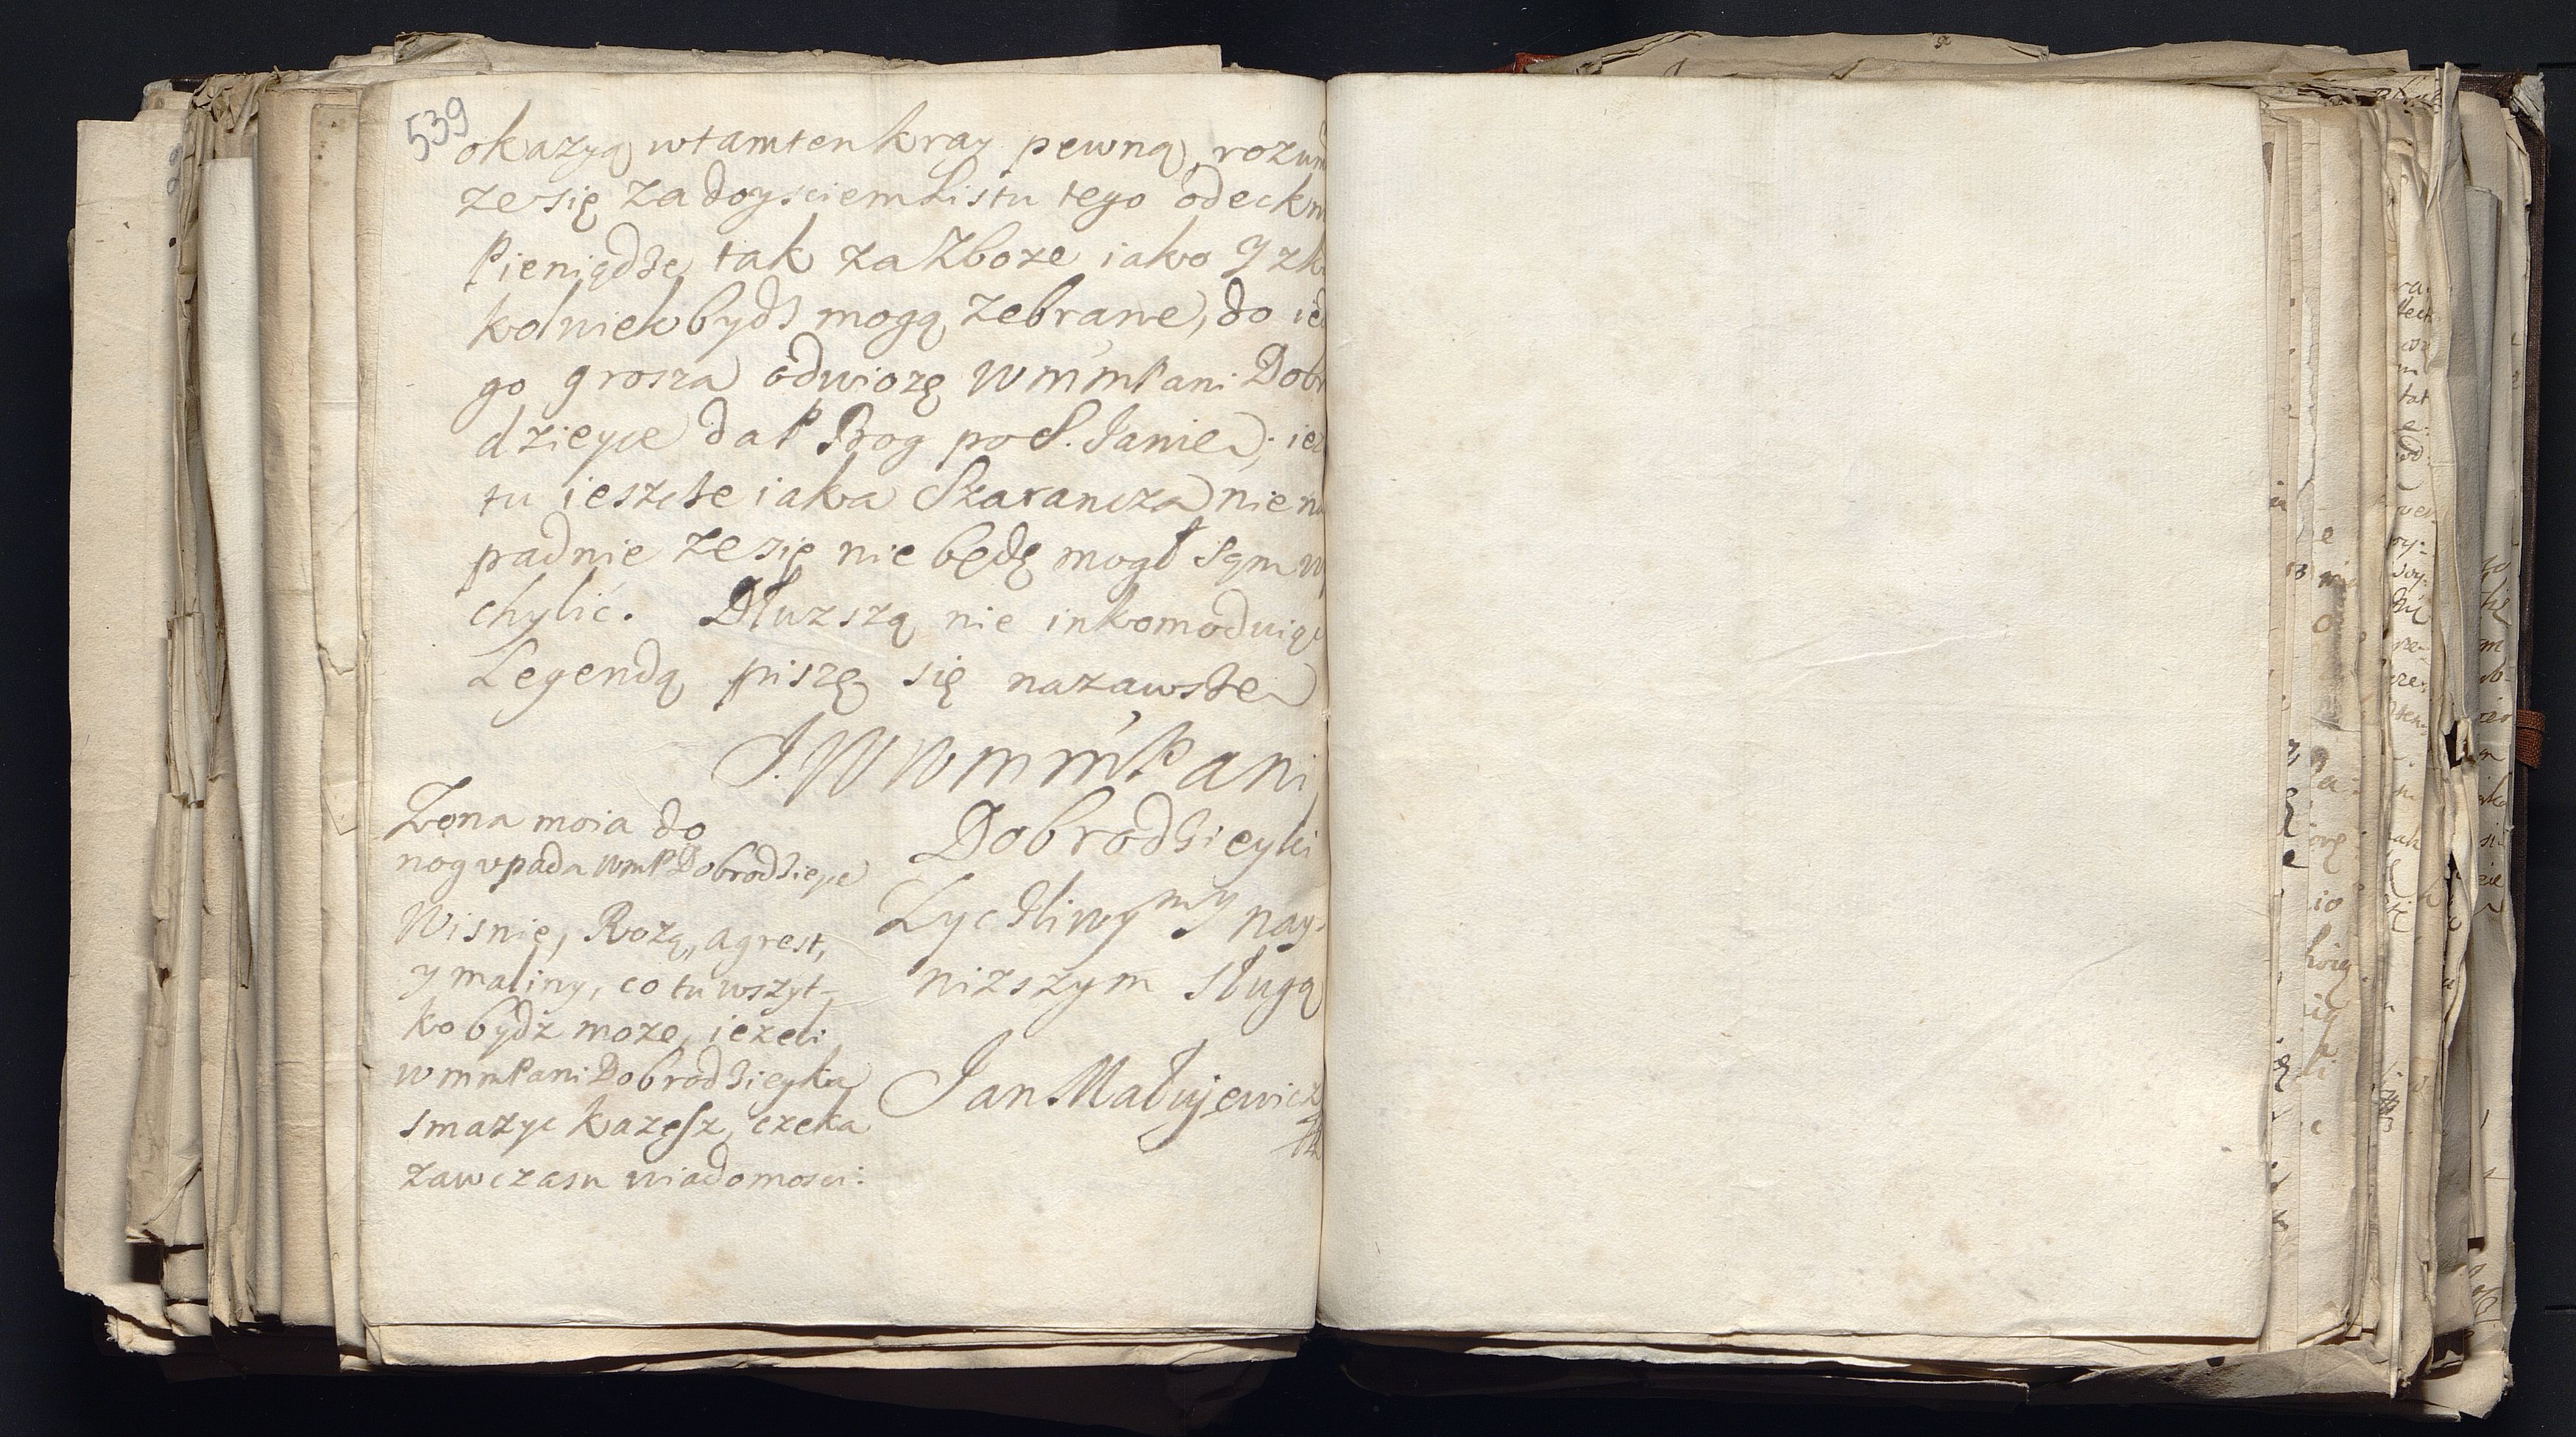 539
okazyą wtamten kray pewną, rozum
ze się za doysciem Listu tego odeckn
Pieniądze, tak za Zboze iako Y zk
kolwiek bydz mogą zebrane, do ied
go grosza odwiozę WmmPani Dobr
dzieyce da P Bog po S. Janie; iez
tu ieszcze iaka Szarancza nie na
padnie ze się nie będę mogł sam w
chylić. Dłuzszą nie inkomoduiąc
Legendą piszę się nazawsze
J.WWmmPani
Dobrodzieyki
Zyczliwym y nay-
nizszym sługą
Jan Matujewicz
Zona moia do
nog upada WmP Dobrodzieyce
Wisnie, Rozą, agrest,
y maliny, co tu wszyt-
ko bydz moze, iezeli
WmmPani Dobrodzieyka
smazyc kazesz, czeka
zawczasu wiadomosci: